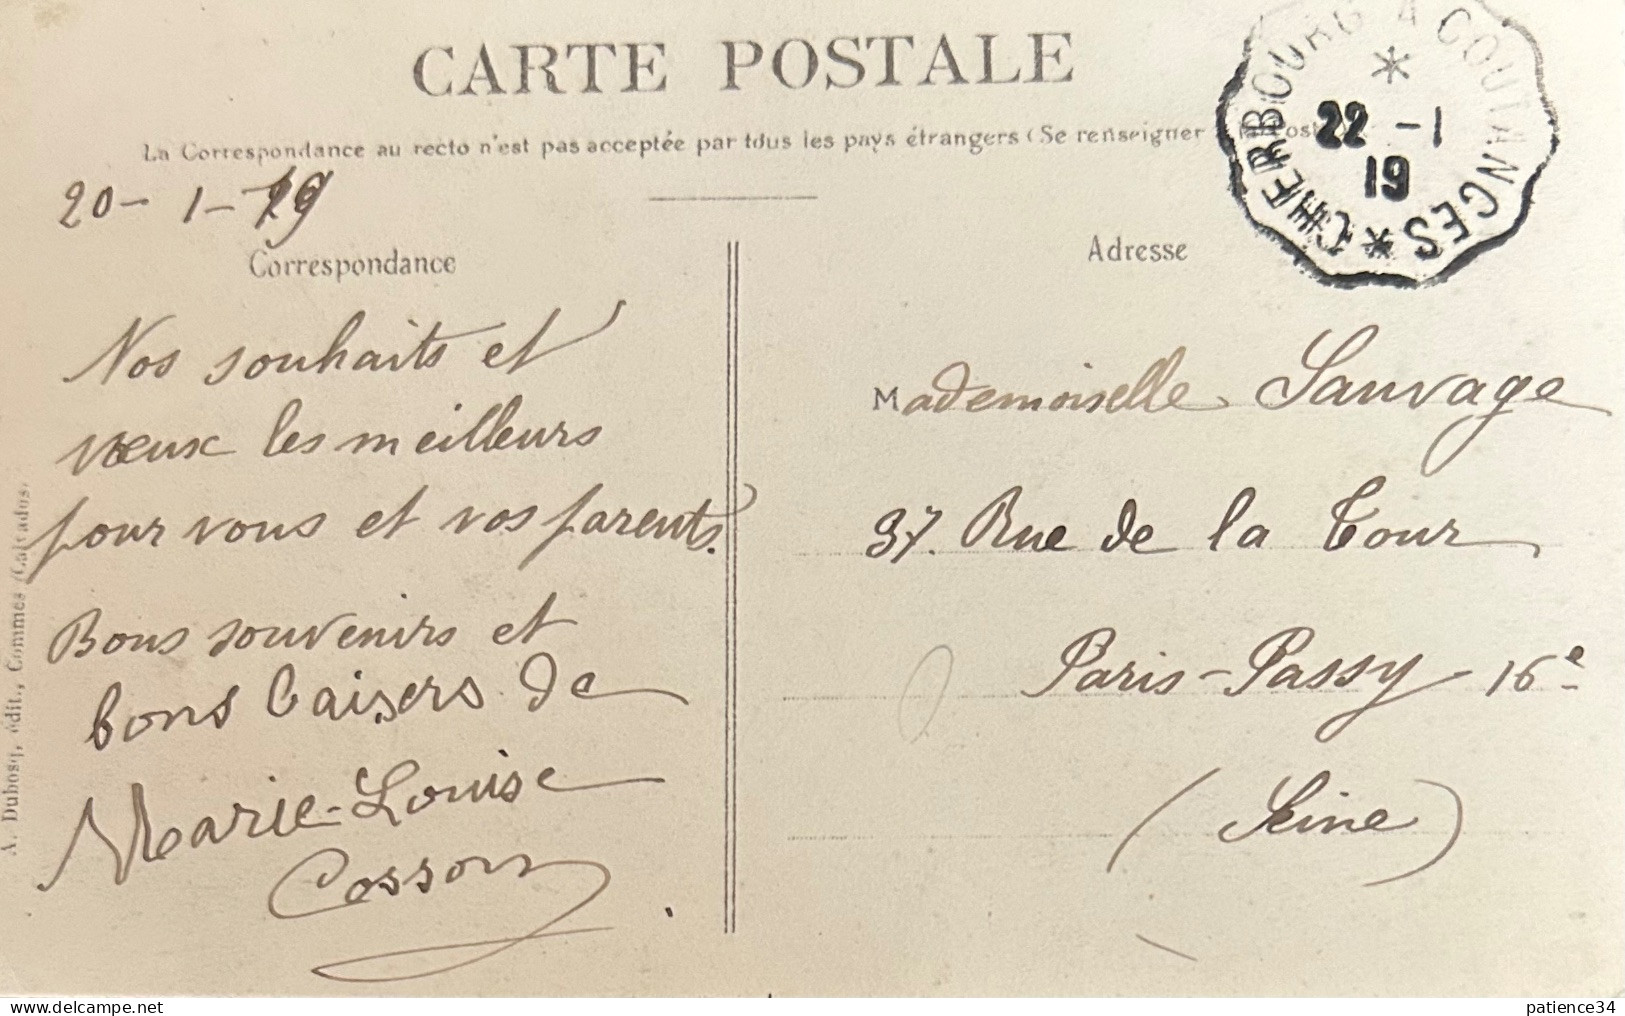 CARTE POSTALE
La Correspondance au recto n'est pas acceptée par tous les pays étrangers (Se renseigner
CHERBOURG A COUTANCES
22 -1
19
20 - 1 - 19
Correspondance
Nos souhaits et
vœux les meilleurs
pour vous et vos parents.
Bons souvenirs et
bons baisers de
Marie-Louise
Cosson
Adresse
Mademoiselle Sauvage
37. Rue de la Tour
Paris-Passy 16e
(Seine)
A. Dubosq, édit., Commes (Calvados)
delcampe.net
patience34